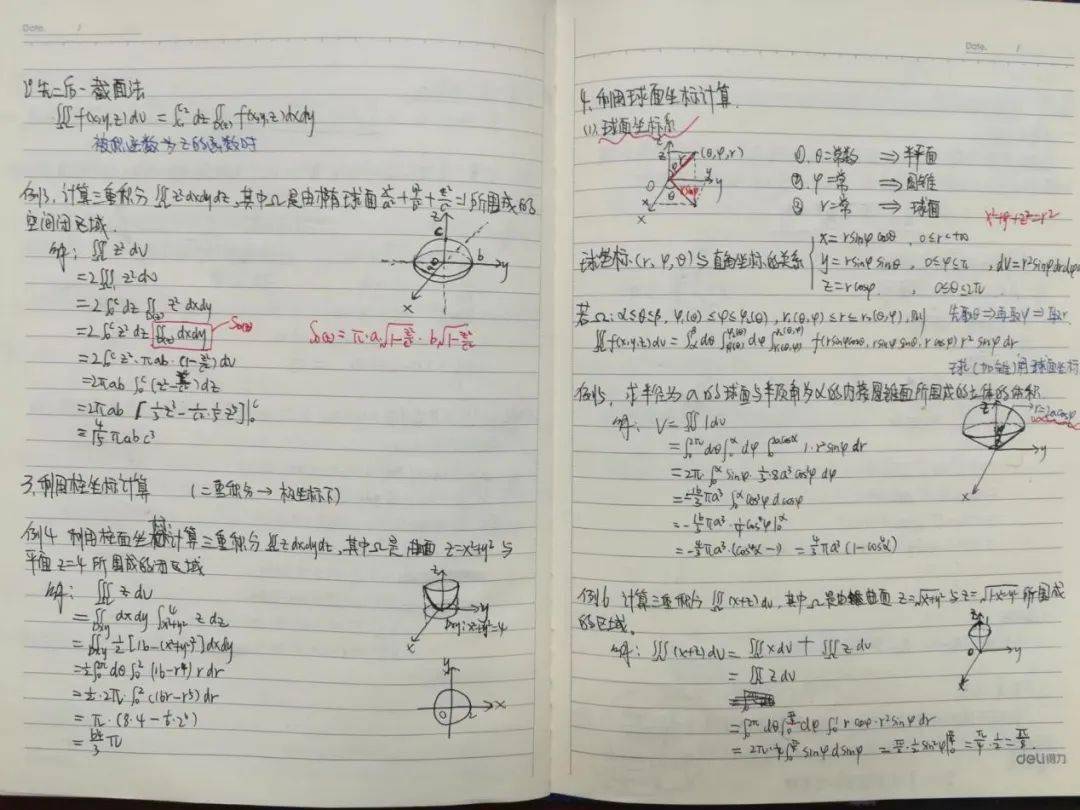 Date. /
2° 先二后一 截面法
∭_Ω f(x,y,z)dv = ∫_{c1}^{c2} dz ∬_{D(z)} f(x,y,z)dxdy
被积函数为z的函数时
例3. 计算三重积分 ∭_Ω z²dxdydz, 其中Ω是由椭球面 x²/a²+y²/b²+z²/c²=1 所围成的
空间闭区域.
解: ∭_Ω z² dv
= 2∭_{Ω1} z² dv
= 2∫_0^c dz ∬_{D(z)} z² dxdy
= 2∫_0^c z² dz ∬_{D(z)} dxdy S_{D(z)}
S_{D(z)} = π·a√(1-z²/c²)·b√(1-z²/c²)
= 2∫_0^c z²·πab·(1-z²/c²)dv
= 2πab ∫_0^c (z²-z⁴/c²)dz
= 2πab [⅓z³-1/c²·⅕z⁵]|_0^c
= 4/15 πabc³
z c b y a x
3. 利用柱坐标计算 (二重积分→极坐标下)
例4 利用柱面坐标计算三重积分 ∭_Ω z dxdydz, 其中Ω是 曲面 z=x²+y² 与
平面 z=4 所围成的闭区域
解: ∭_Ω z dv
= ∬_{Dxy} dxdy ∫_{x²+y²}^4 z dz
= ∬_{Dxy} ½[16-(x²+y²)²]dxdy
= ½∫_0^{2π} dθ ∫_0^2 (16-r⁴) r dr
= ½·2π·∫_0^2 (16r-r⁵)dr
= π·(8·4-⅙·2⁶)
= 64/3 π
z y x Dxy: x²+y²=4
y O 2 x
Date. /
4. 利用球面坐标计算.
(1). 球面坐标系
z (θ,φ,r) r φ O θ rsinφ y x
①. θ=常数 ⇒ 半平面
②. φ=常 ⇒ 圆锥
③ r=常 ⇒ 球面
x²+y²+z²=r²
球坐标(r,φ,θ)与直角坐标的关系
x=rsinφcosθ, 0≤r<+∞
y=rsinφsinθ, 0≤φ≤π, dv=r²sinφdrdφdθ
z=rcosφ, 0≤θ≤2π
若Ω: α≤θ≤β, φ₁(θ)≤φ≤φ₂(θ), r₁(θ,φ)≤r≤r₂(θ,φ), 则 先取θ⇒再取φ⇒取r
∭_Ω f(x,y,z)dv = ∫_α^β dθ ∫_{φ₁(θ)}^{φ₂(θ)} dφ ∫_{r₁(θ,φ)}^{r₂(θ,φ)} f(rsinφcosθ, rsinφsinθ, rcosφ) r² sinφ dr
球(加锥)用球面坐标
例5. 求半径为a的球面与半顶角为α的内接圆锥面所围成的立体的体积.
解: V = ∭_Ω 1dv
= ∫_0^{2π} dθ ∫_0^α dφ ∫_0^{2acosφ} 1·r²sinφ dr
= 2π·∫_0^α sinφ·⅓·8a³cos³φ dφ
= -16/3 πa³ ∫_0^α cos³φ dcosφ
= -16/3 πa³·¼cos⁴φ|_0^α
= -4/3 πa³·(cos⁴α-1) = 4/3 πa³(1-cos⁴α)
z r=2acosφ y x
例6 计算三重积分 ∭_Ω (x+z)dv, 其中Ω是由曲面 z=√(x²+y²) 与 z=√(1-x²-y²) 所围成
的区域.
解: ∭_Ω (x+z)dv = ∭_Ω xdv + ∭_Ω z dv
= ∭_Ω z dv
= ∫_0^{2π} dθ ∫_0^{π/4} dφ ∫_0^1 r cosφ·r²sinφ dr
= 2π·¼∫_0^{π/4} sinφ dsinφ = π/2·½sin²φ|_0^{π/4} = π/4·½ = π/8.
z 1 O y x
deli得力